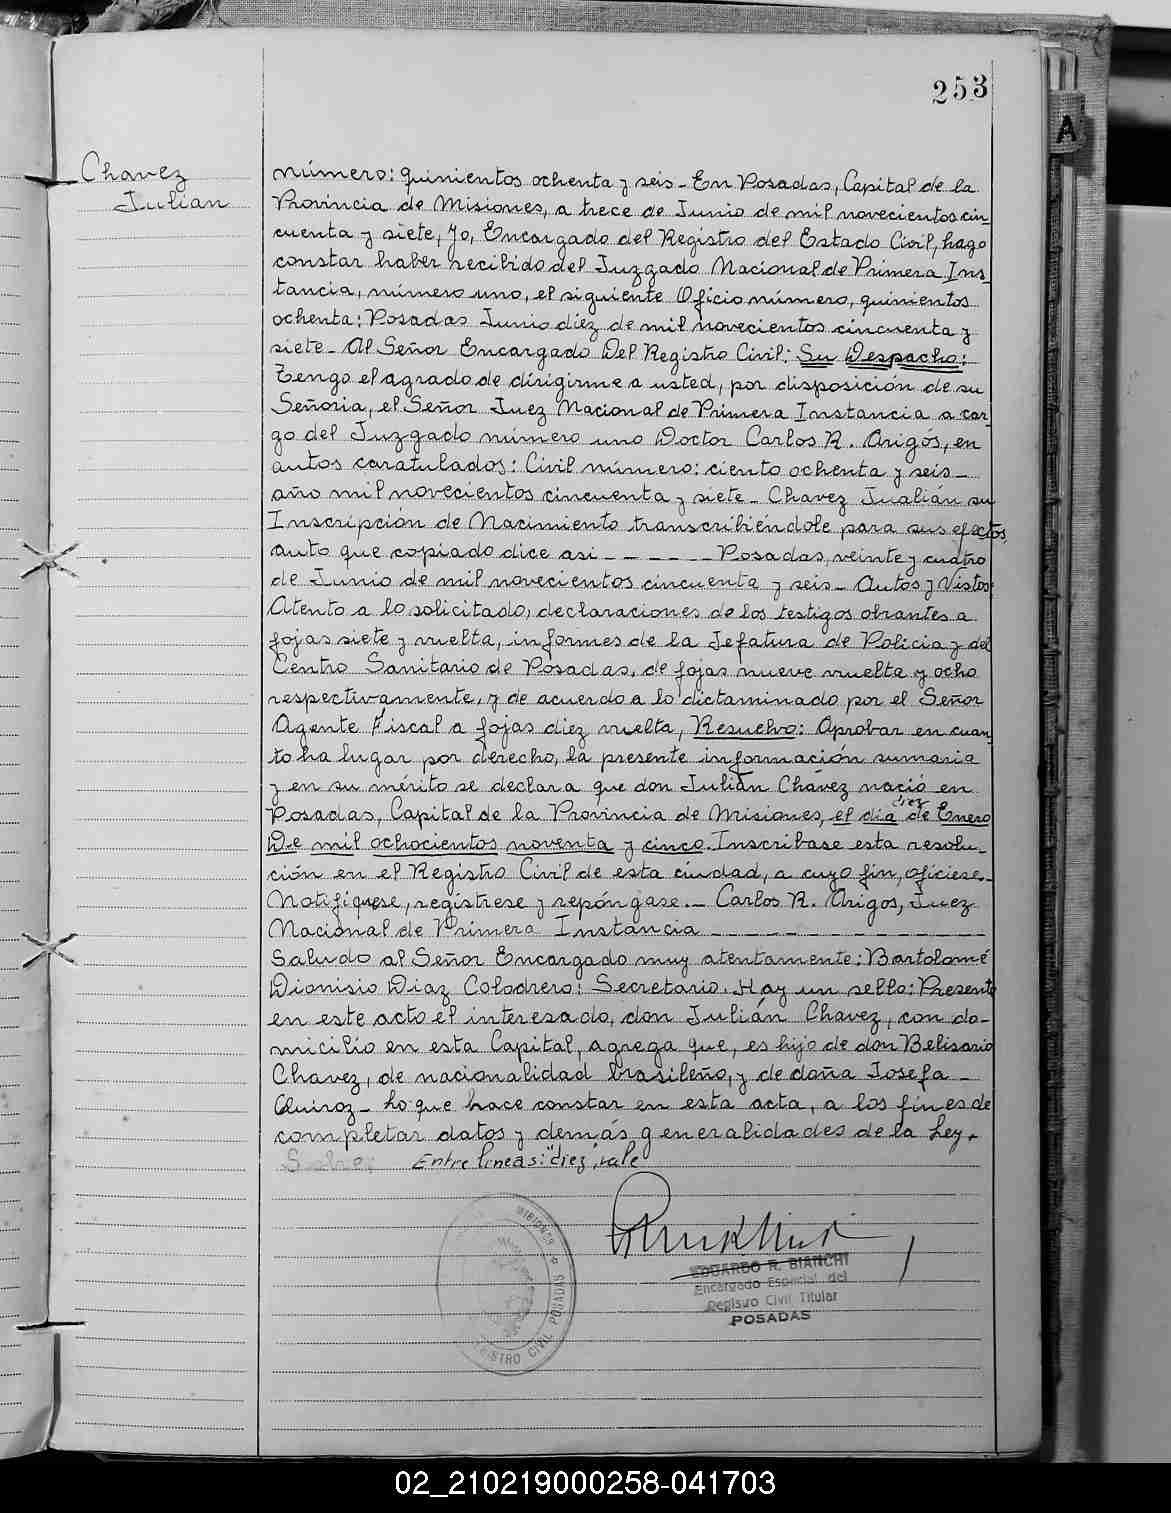 253
Chavez
Julian
número: quinientos ochenta y seis - En Posadas, Capital de la
Provincia de Misiones, a trece de Junio de mil novecientos cin
cuenta y siete, yo, Encargado del Registro del Estado Civil, hago
constar haber recibido del Juzgado Nacional de Primera Ins
tancia, número uno, el siguiente Oficio número, quinientos
ochenta: Posadas Junio diez de mil novecientos cincuenta y
siete - Al Señor Encargado Del Registro Civil: Su Despacho:
Tengo el agrado de dirigirme a usted, por disposición de su
Señoria, el Señor Juez Nacional de Primera Instancia a car
go del Juzgado número uno Doctor Carlos R. Arigós, en
autos caratulados: Civil número: ciento ochenta y seis -
año mil novecientos cincuenta y siete - Chavez Jualián su
Inscripción de Nacimiento transcribiéndole para sus efectos,
auto que copiado dice asi - - - - - Posadas, veinte y cuatro
de Junio de mil novecientos cincuenta y seis - Autos y Vistos:
Atento a lo solicitado, declaraciones de los testigos obrantes a
fojas siete y vuelta, informes de la Jefatura de Policia y del
Centro Sanitario de Posadas, de fojas nueve vuelta y ocho
respectivamente, y de acuerdo a lo dictaminado por el Señor
Agente Fiscal a fojas diez vuelta, Resuelvo: Aprobar en cuan
to ha lugar por derecho, la presente información sumaria
y en su mérito se declara que don Julián Chávez nació en
Posadas, Capital de la Provincia de Misiones, el dia diez de Enero
De mil ochocientos noventa y cinco. Inscribase esta resolu-
ción en el Registro Civil de esta ciudad, a cuyo fin, ofíciese.
Notifíquese, regístrese y repóngase. - Carlos R. Arigos, Juez
Nacional de Primera Instancia - - - - - - - - - - - -
Saludo al Señor Encargado muy atentamente: Bartolomé
Dionisio Diaz Colodrero: Secretario. Hay un sello: Presente
en este acto el interesado, don Julián Chavez, con do-
micilio en esta Capital, agrega que, es hijo de don Belisario
Chavez, de nacionalidad brasileño, y de doña Josefa -
Quiroz - Lo que hace constar en esta acta, a los fines de
completar datos y demás generalidades de la Ley.
Entre lineas: "diez", vale
MISIONES
REGISTRO CIVIL POSADAS
EDUARDO R. BIANCHI
Encargado Especial del
Registro Civil Titular
POSADAS
A
02_210219000258-041703